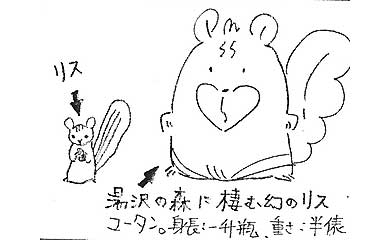 リス
湯沢の森に棲む幻のリス
コータン。身長:一升瓶、重さ:半俵